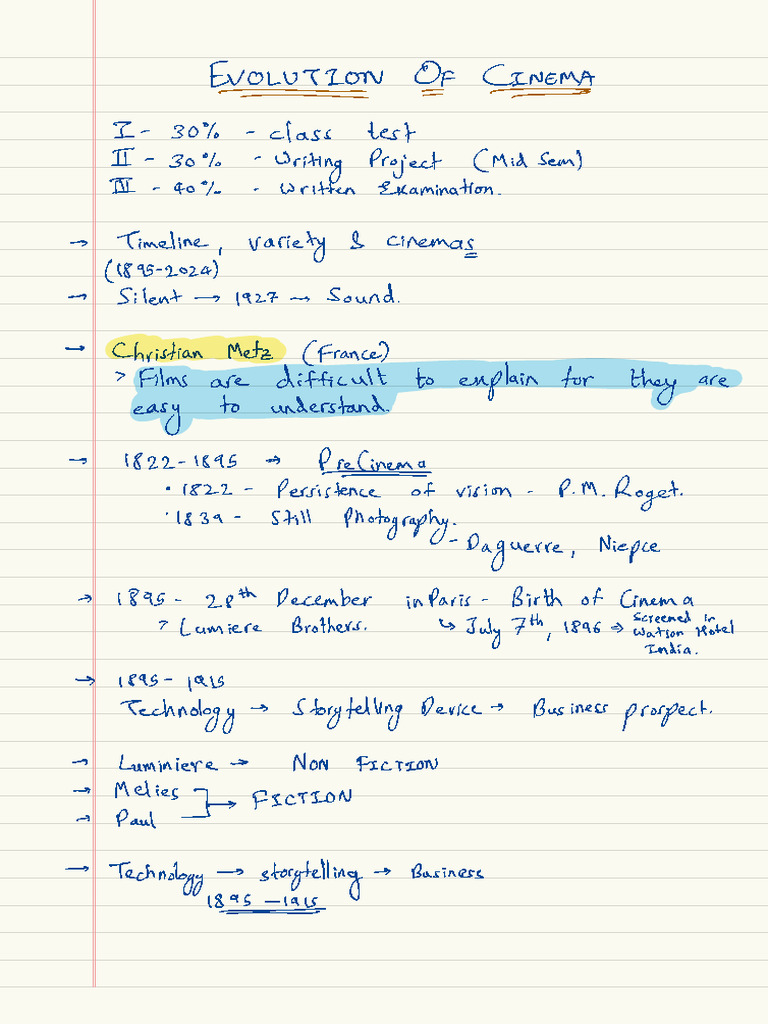 EVOLUTION OF CINEMA
I - 30% - class test
II - 30% - Writing Project (Mid Sem)
IV - 40% - Written Examination.
→ Timeline, variety & cinemas
(1895-2024)
→ Silent → 1927 → Sound.
→ Christian Metz (France)
> Films are difficult to explain for they are
easy to understand.
→ 1822-1895 → PreCinema
• 1822 - Persistence of vision - P.M. Roget.
• 1839 - Still Photography.
- Daguerre, Niepce
→ 1895 - 28th December in Paris - Birth of Cinema
> Lumiere Brothers. ↳ July 7th, 1896 → Screened in
Watson Hotel
India.
→ 1895 - 1915
Technology → Storytelling Device → Business prospect.
→ Luminiere → NON FICTION
→ Melies
→ FICTION
→ Paul
→ Technology → storytelling → Business
1895 - 1915